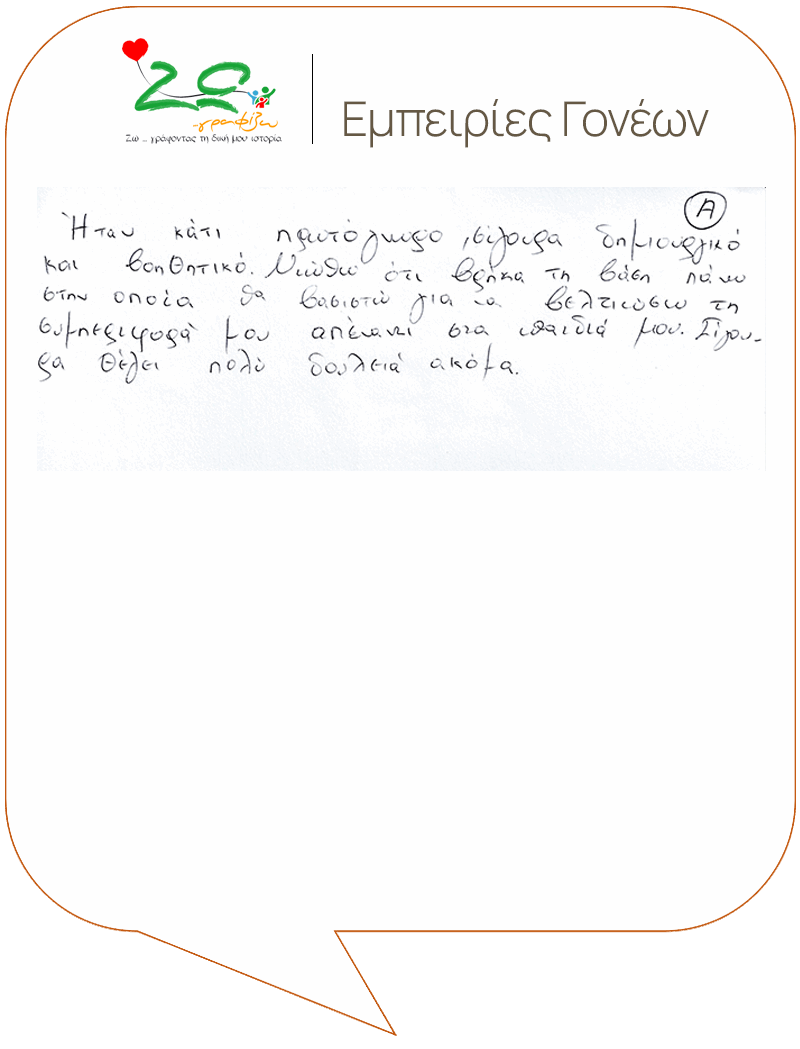 ΖΩ
-γραφίζω
Ζω ... γράφοντας τη δική μου ιστορία
Εμπειρίες Γονέων
Α
Ήταν κάτι πρωτόγνωρο, σίγουρα δημιουργικό
και βοηθητικό. Νιώθω ότι βρήκα τη βάση πάνω
στην οποία θα βασιστώ για να βελτιώσω τη
συμπεριφορά μου απέναντι στα παιδιά μου. Σίγου-
ρα θέλει πολύ δουλειά ακόμα.